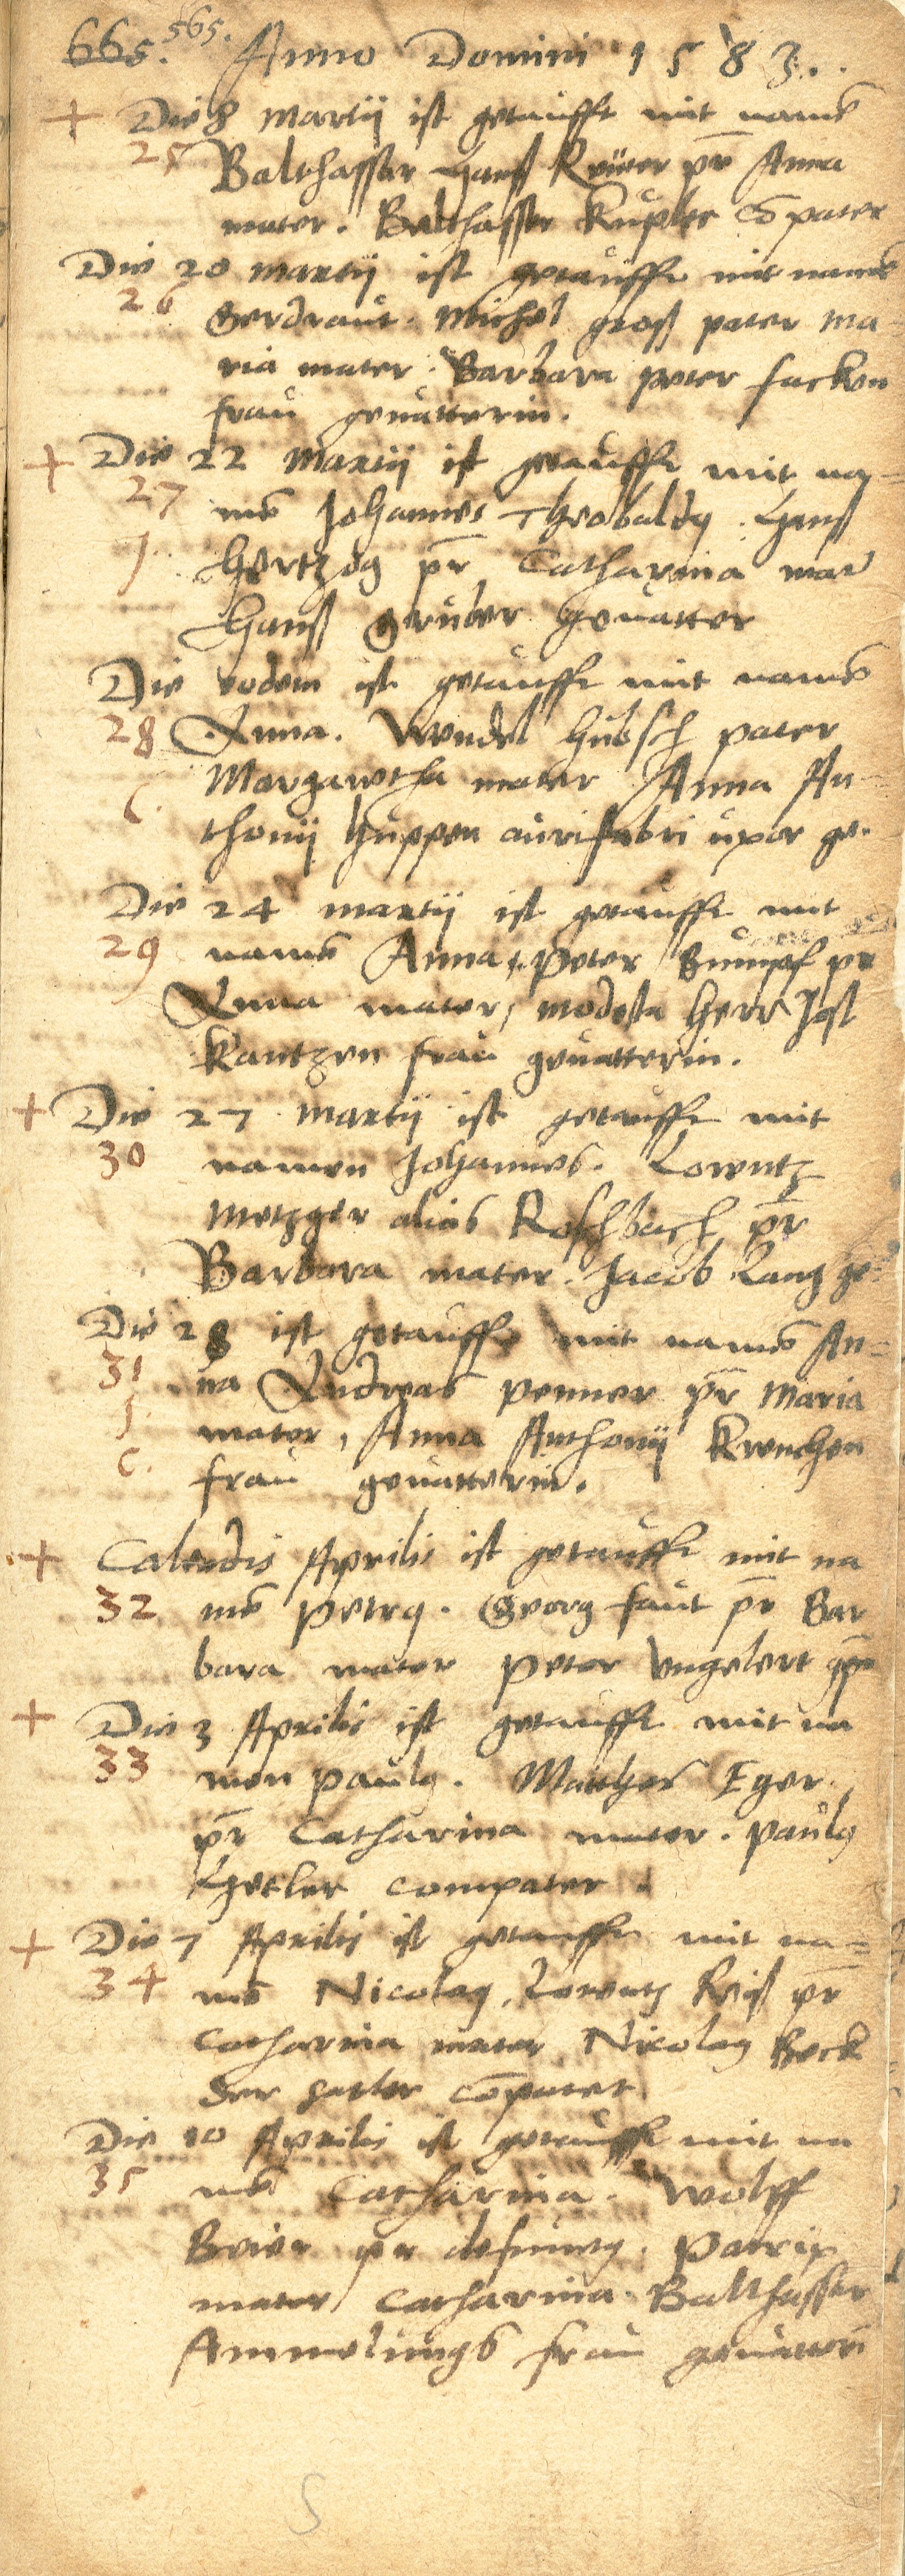 665. 565. Anno Domini 1583.
+ Die 8 Martij ist getaufft mit namē
25 Balthasser Hanß Krüer pr̄ Anna
mater. Balthasser Kupler cōpater
Die 20 Martij ist getaufft mit namē
26 Gerdraut. Michel groß pater Ma-
ria mater. Barbara peter facken
frau geuatterin.
+ Die 22 Martij ist getaufft mit na-
27 mē Johannes Theobaldꝰ. Hanß
J. Hertzog pr̄ Catharina mat
Hanß Gruber geuatter
Die eodem ist getaufft mit namē
28 Anna. Wendel Hubsch pater
C. Margaretha mater Anna An-
thonij Huppen aurifabri uxor ge.
Die 24 Martij ist getaufft mit
29 namē Anna, Peter Gumpf pr
Anna mater, modesta Herr Jost
Kantzen frau geuatterin.
+ Die 27 Martij ist getaufft mit
30 namen Johannes. Lorentz
Metzger alias Roschbach pr̄
Barbara mater. Jacob Lang ge-
Die 28 ist getaufft mit namē An-
31 na Andreas penner pr̄ Maria
J. mater, Anna Anthonij Krenchen
C. frau geuatterin.
+ Calendis Aprilis ist getaufft mit na
32 mē petrꝰ. Georg faut pr̄ Bar
bara mater peter Engelert
+ Die 3 Aprilis ist getaufft mit na
33 men paulꝰ. Mattheß Eger.
pr̄ Catharina mater. paulꝰ
Hetler compater.
+ Die 7 Aprilis ist getaufft mit na-
34 mē Nicolaꝰ, Lorentz Reiß pr̄
Catharina mater Nicolaꝰ Beck
der satler cōpater
Die 10 Aprilis ist getaufft mit na
35 mē Catharina. Wolff
Beier pr defunctꝰ. Patrix
mater Catharina. Balthasser
Ammelungs frau geuatteri
5